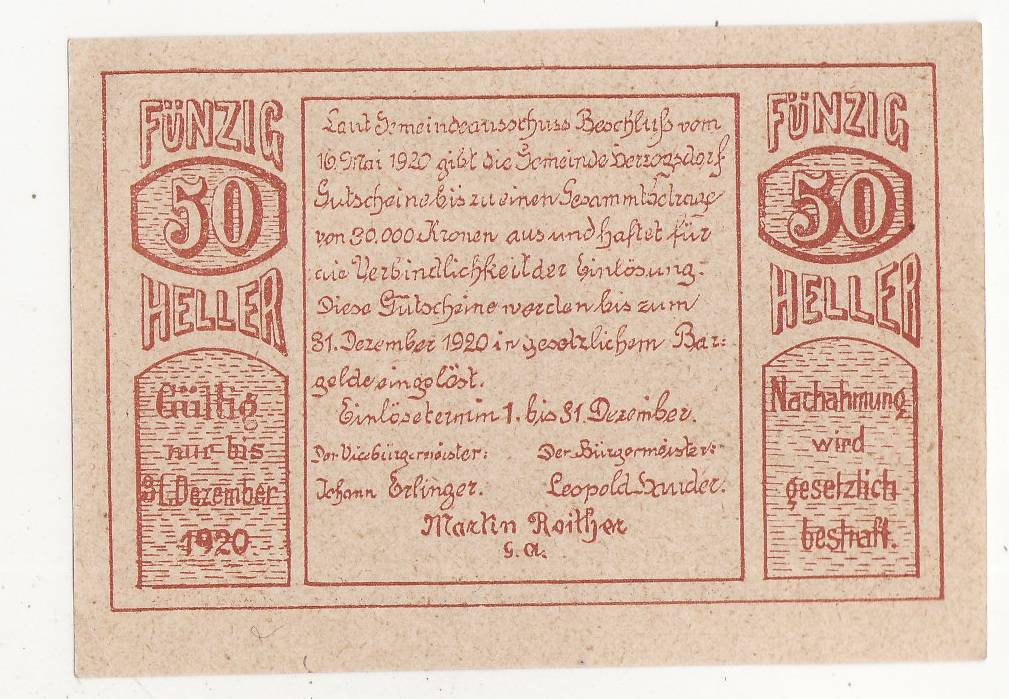 FÜNZIG
50
HELLER
Gültig
nur bis
31. Dezember
1920.
Laut Gemeindeausschuss Beschluß vom
16. Mai 1920 gibt die Gemeinde Herzogsdorf
Gutscheine bis zu einen Gesammtbetrage
von 30.000 Kronen aus und haftet für
die Verbindlichkeit der Einlösung.
Diese Gutscheine werden bis zum
31. Dezember 1920 in gesetzlichem Bar=
gelde eingelöst.
Einlösetermin 1. bis 31 Dezember.
Der Vicebürgermeister: Der Bürgermeister:
Johann Erlinger. Leopold
Martin Reither
G. A.
FÜNZIG
50
HELLER
Nachahmung
wird
gesetzlich
bestraft.